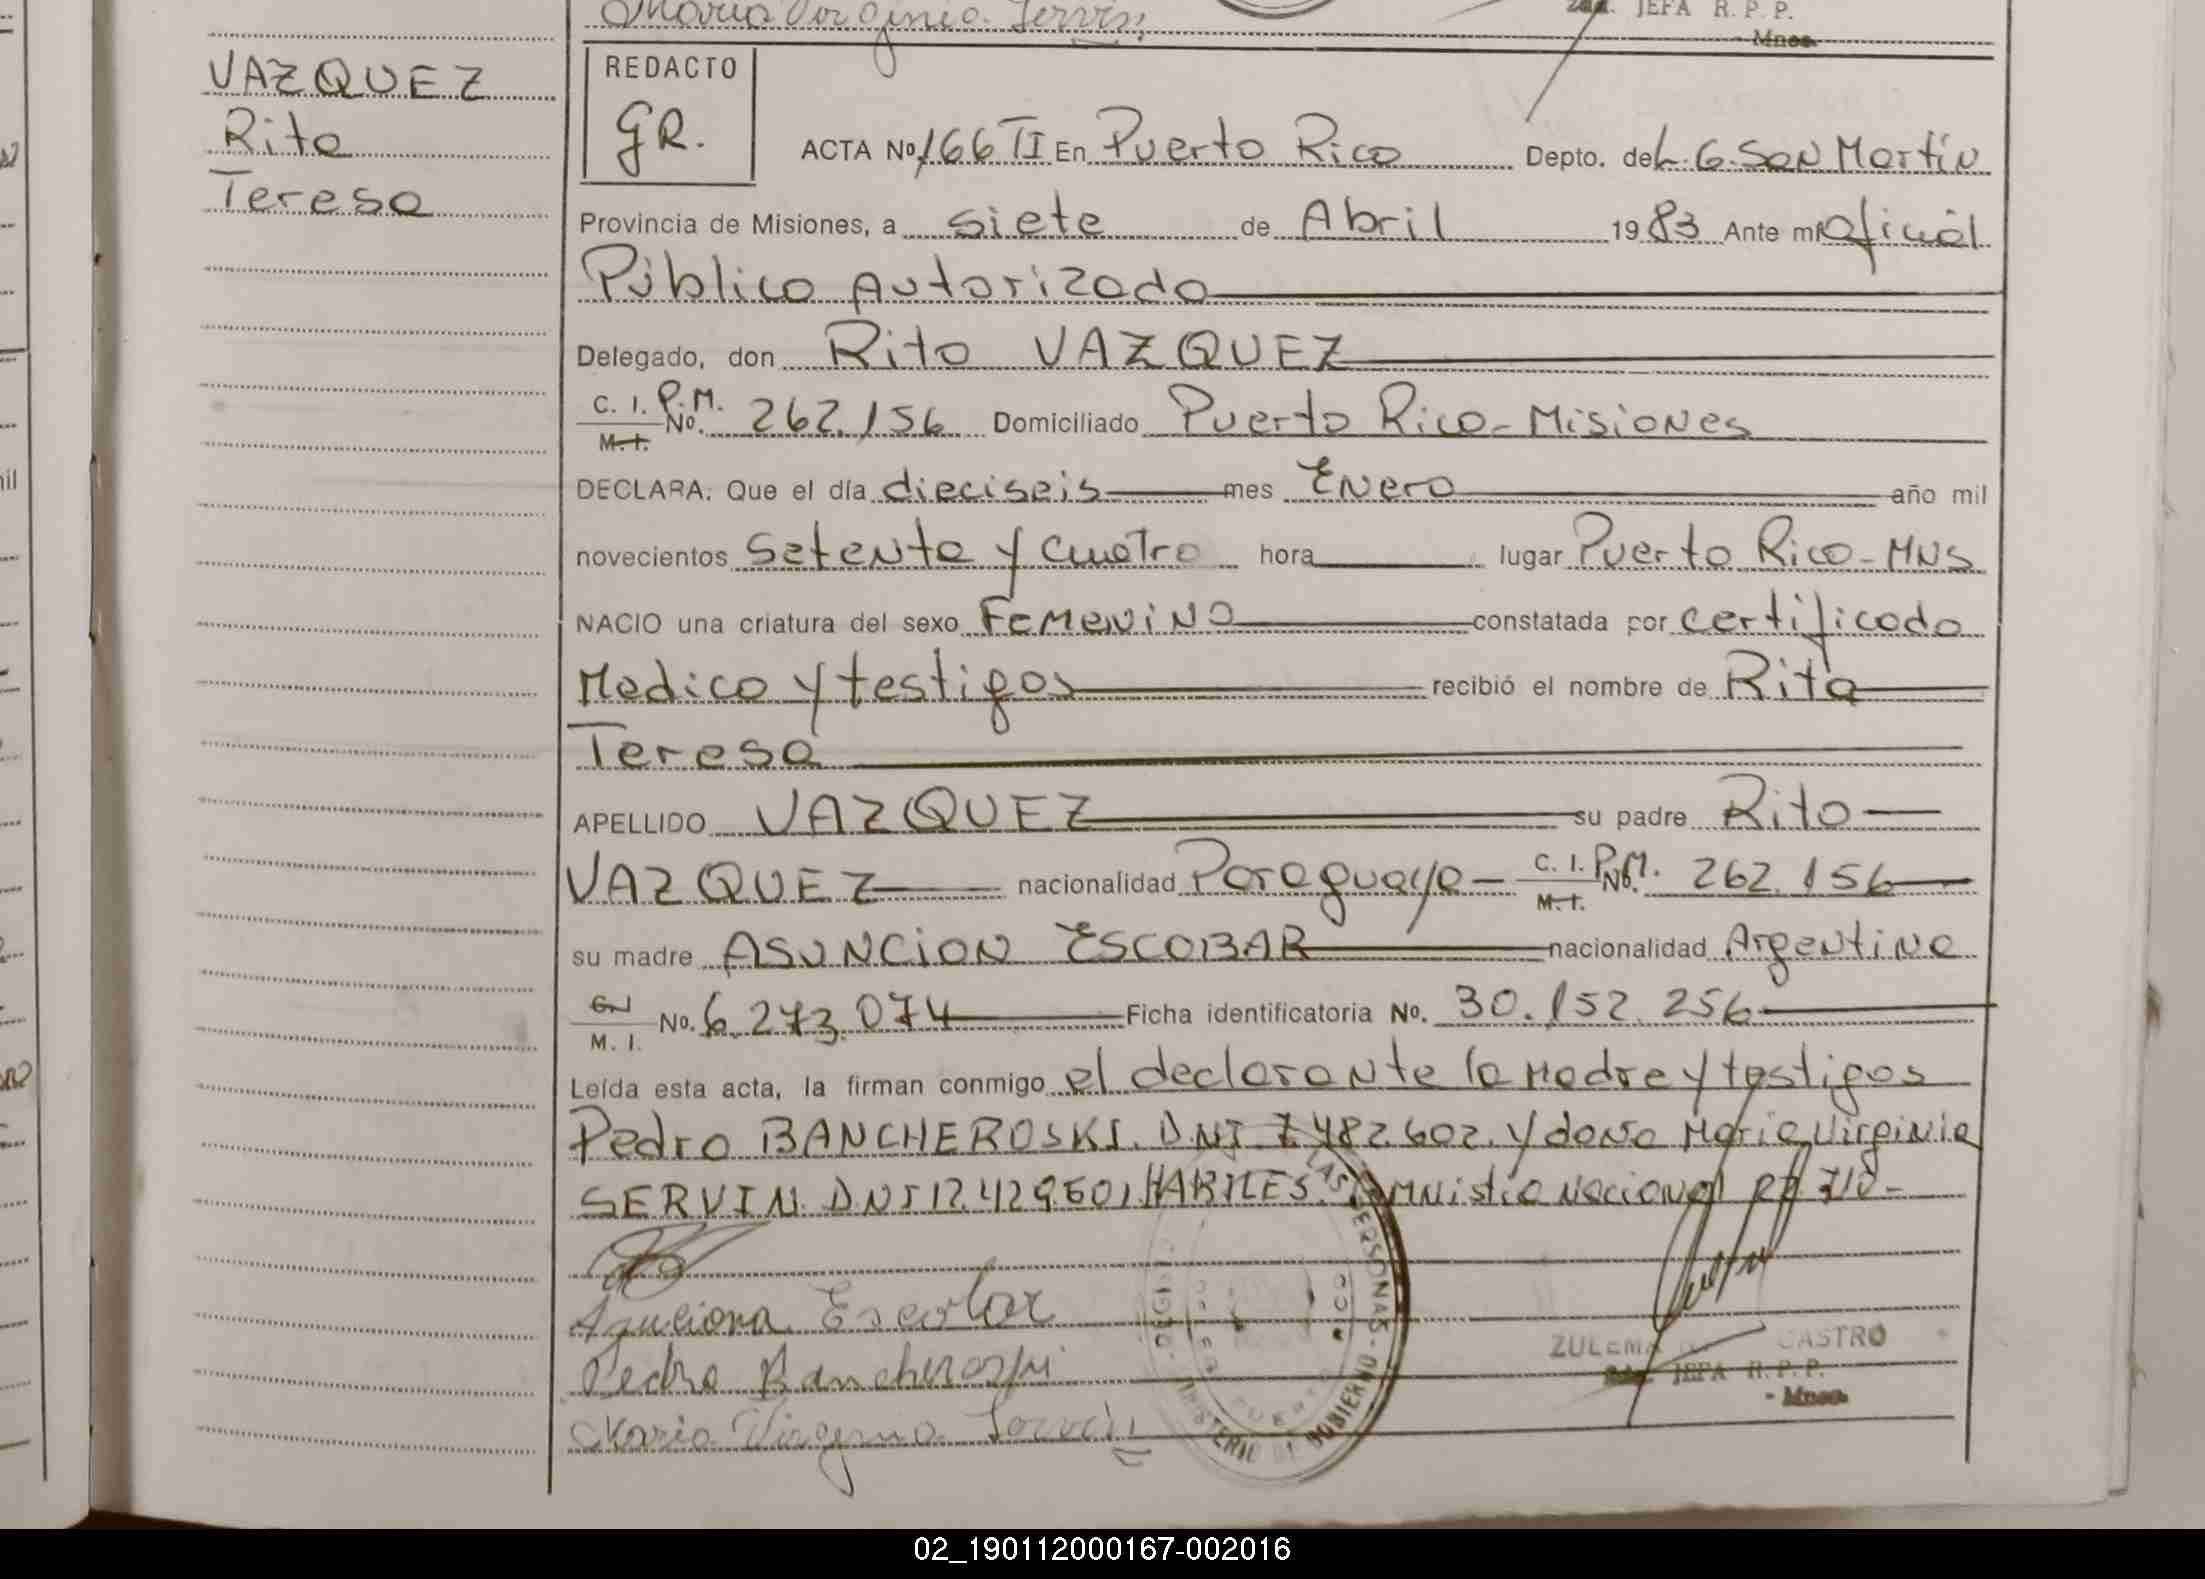 Maria Virginia Servin
2da. JEFA R. P. P.
- Mnes.
VAZQUEZ
Rita
Teresa
REDACTO
GR.
ACTA No 166 TI En Puerto Rico Depto. de L. G. San Martín
Provincia de Misiones, a siete de Abril 19 83 Ante mí Oficial
Público Autorizado
Delegado, don Rito VAZQUEZ
C. I. P.M. No. 262.156 Domiciliado Puerto Rico - Misiones
M. I.
DECLARA: Que el día dieciseis mes Enero año mil
novecientos setenta y cuatro hora lugar Puerto Rico - MNS
NACIO una criatura del sexo Femenino constatada por certificado
Medico y testigos recibió el nombre de Rita
Teresa
APELLIDO VAZQUEZ su padre Rito
VAZQUEZ nacionalidad Paraguaya - C. I. P.M. No. 262.156
M. I.
su madre ASUNCION ESCOBAR nacionalidad Argentina
M. I. No. 6.273.074 Ficha identificatoria No. 30.152.256
Leída esta acta, la firman conmigo el declarante la Madre y testigos
Pedro BANCHEROSKI. D.N.I 7.482.602. y doña Maria Virginia
SERVIN. D.N.I 12.429.601 HABILES. Amnistia Nacional
Escobar
Pedro Bancheroski
Maria Virginia Servin
PERSONAS - MINISTERIO DE GOBIERNO
ZULEMA CASTRO
2da. JEFA R. P. P.
- Mnes.
02_190112000167-002016